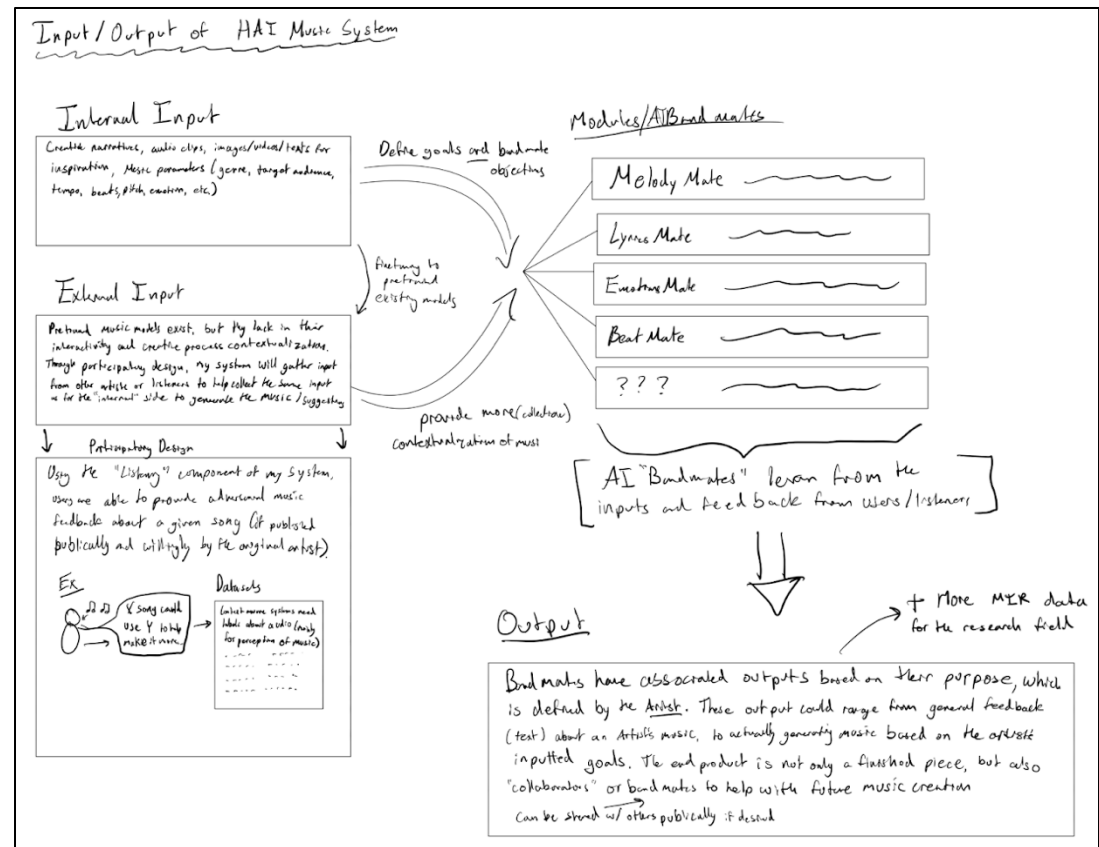 Input/Output of HAI Music System
Internal Input
Creative narratives, audio clips, images/videos/texts for
inspiration, Music parameters (genre, target audience,
tempo, beats, pitch, emotion, etc.)
Define goals and bandmate
objectives
finetuning to
pretrained
existing models
External Input
Pretrained music models exist, but they lack in their
interactivity and creative process contextualization.
Through participatory design, my system will gather input
from other artists or listeners to help collect the same input
as for the "internal" side to generate the music/suggestions
provide more (collection)
contextualization of music
Participatory Design
Using the "Listening" component of my system,
users are able to provide adversarial music
feedback about a given song (if published
publically and willingly by the original artist).
Ex
X song could
use Y to help
make it more...
Datasets
systems need
labels about audio (mainly
for perception of music)
Modules/AI Bandmates
Melody Mate
Lyrics Mate
Emotions Mate
Beat Mate
? ? ?
AI "Bandmates" learn from the
inputs and feedback from users/listeners
Output
+ More MIR data
for the research field
Bandmates have associated outputs based on their purpose, which
is defined by the Artist. These output could range from general feedback
(text) about an Artist's music, to actually generating music based on the artists
inputted goals. The end product is not only a finished piece, but also
"collaborators" or bandmates to help with future music creation
can be shared w/ others publically if desired